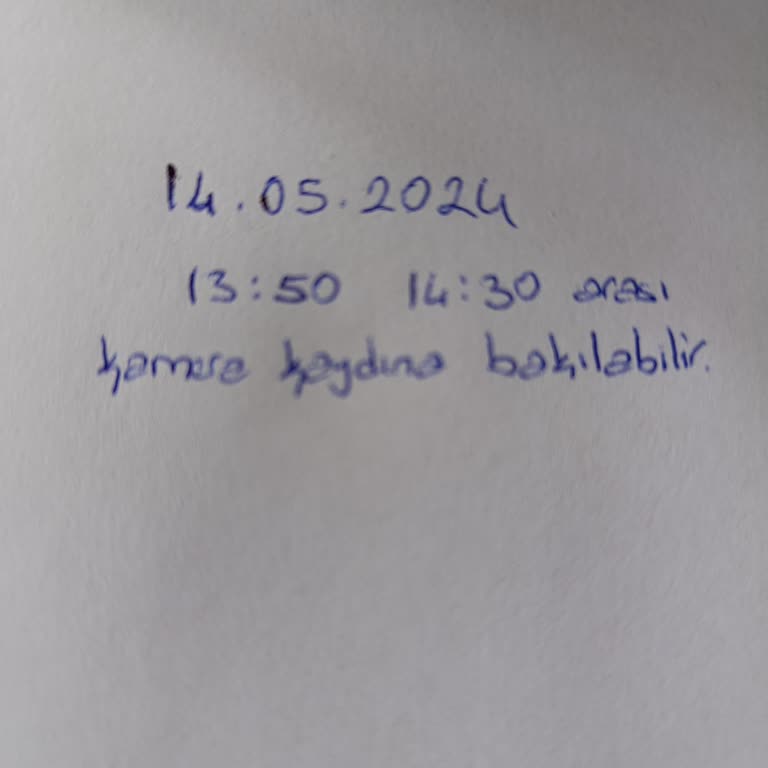 14.05.2024
13:50 14:30 arası
kamera kaydına bakılabilir.